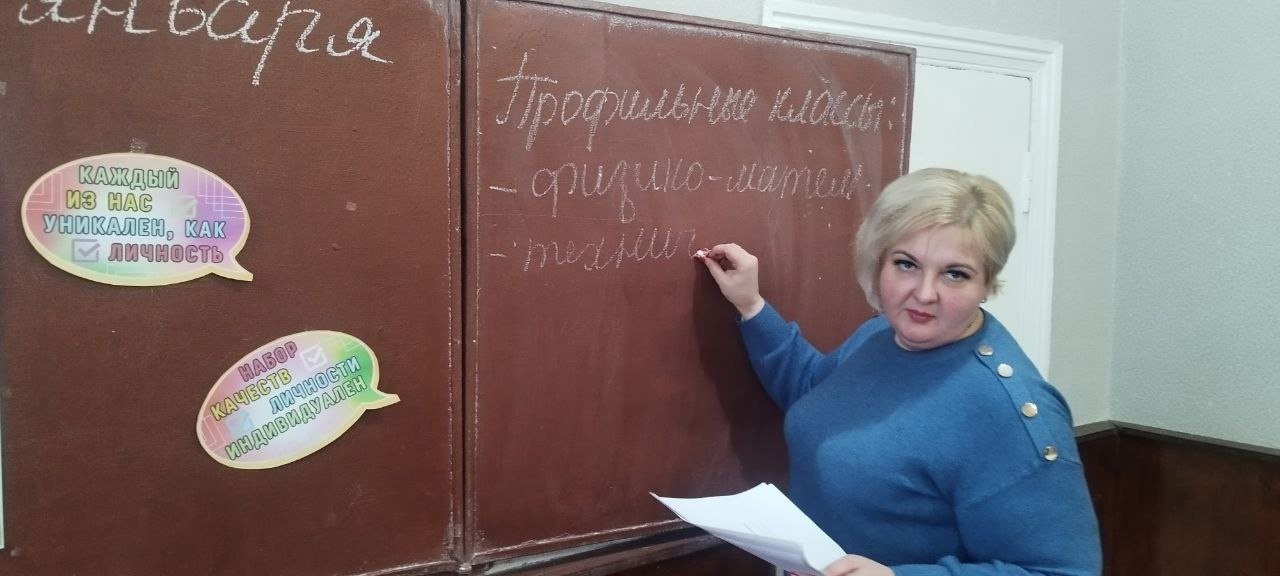 января
КАЖДЫЙ
ИЗ НАС
УНИКАЛЕН, КАК
ЛИЧНОСТЬ
НАБОР
КАЧЕСТВ
ЛИЧНОСТИ
ИНДИВИДУАЛЕН
Профильные классы:
- физико-матем.
- технич